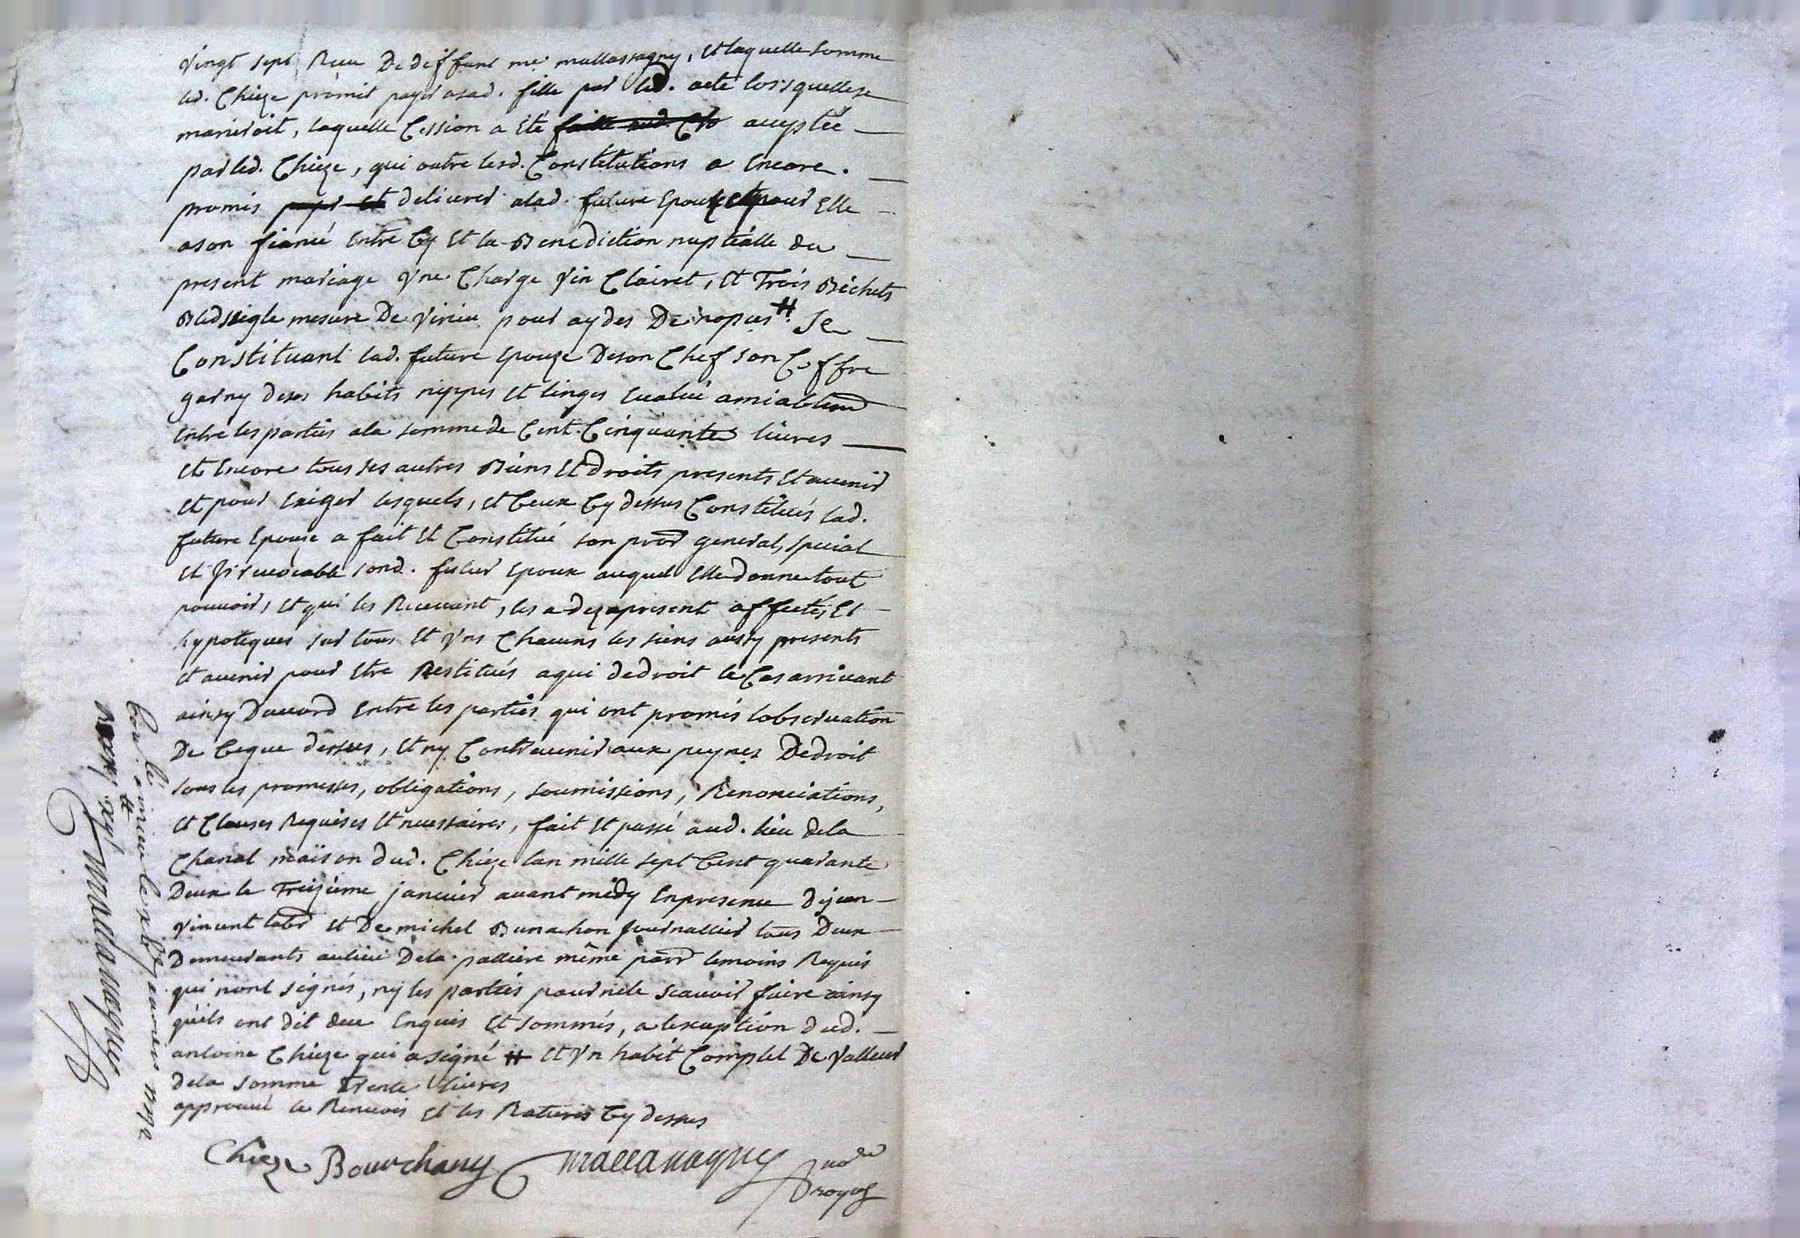 vingt sept Receu De deffunt me mallassagny, Et laquelle somme
led. Chieze promit payer asad. fille par led. acte lorsquellese
marieroit, laquelle Cession a Eté faitte aud. Ch acceptée
par led. Chieze, qui outre lesd. Constitutions a Encore.
promis payer et delivrer alad. future Epouze et pour Elle
ason fiancé Entre Cy Et la Benediction nuptialle du
present mariage Une Charge vin Clairet, Et Trois Bichets
Bled seigle mesure De virieu pour aydes De nopces # Se
Constituant lad. future Epouze Deson Chef son Coffre
garny deses habits nippes Et linges Evalué amiablemt
Entre les parties ala somme de Cent Cinquante livres
Et Encore tous ses autres Biens Et Droits presents Et avenir
Et pour Exiger lesquels, Et Ceux Cy dessus Constitués lad.
future Epouze a fait Et Constitué son procr general, special
Et Irrevocable sond. futur Epoux auquel Elle donne tout
pouvoir, Et qui les Recevant, les a dezapresent affectés Et
hypoteques sur tous Et Uns Chacuns les siens aussy presents
Et avenir pour Etre Restitués aqui dedroit le Cas arrivant
ainsy Daccord Entre les parties qui ont promis lobservation
De Ceque dessus, Et ny Contrevenir aux peynes Dedroit
sous les promesses, obligations, soumissions, Renonciations,
Et Clauses Requises Et necessaires, fait Et passé aud. lieu dela
Chanal maison dud. Chieze lan mille sept Cent quarante
Deux le Treizieme janvier avant midy Enpresence Dejean
vincent labr Et De michel Bunachon journallier tous Deux
Demeurants aulieu Dela pallière même parr temoins Requis
qui nont signés, ny les parties pour nele scavoir faire ainsy
quils ont dit deue Enquis Et sommés, a lexception dud.
antoine Chieze qui a signé # Et Un habit Complet De valleur
dela somme Trente livres
approuvé le Renvois Et les Ratures Cy dessus
Chieze Bouchany mallassagny no.re Royal